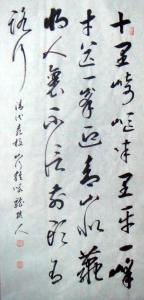 十里崎嶇半里平一峰
才送一峯迎青山似繭
将人裹不信前头有
路行
清代袁枚山行雜咏